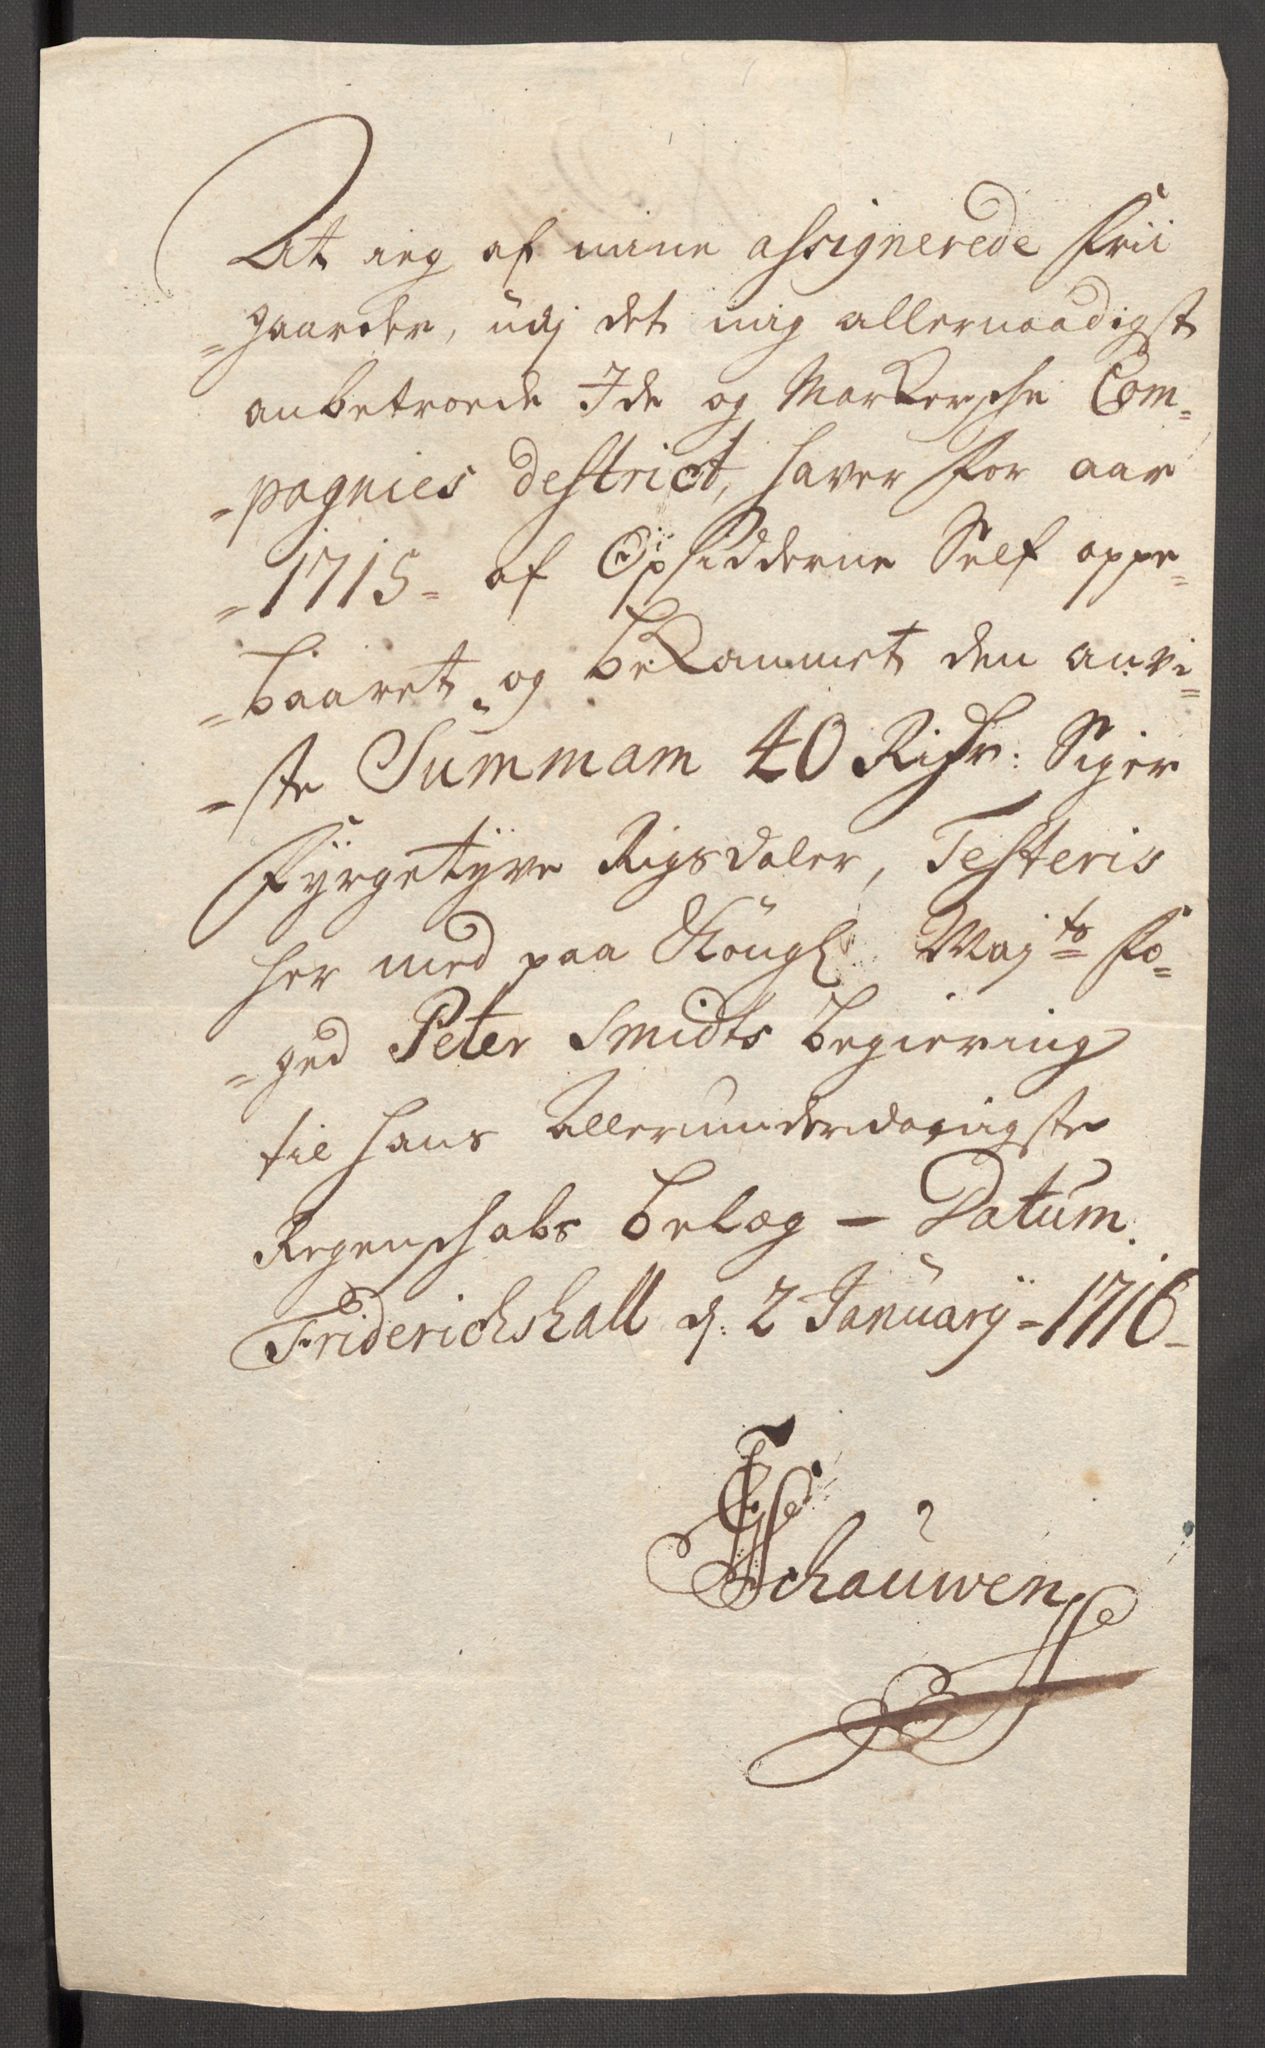 At ieg af mine assignerede Frii
=gaarder, udj det mig allernaadigst
anbetroede Ide og Markersche Com=
=pagnies destrict, haver for aar
=1715= af Opsidderne Self oppe=
=baaret og bekommet den anvi=
=ste Summam 40 Rixdr: Siger
Fyrgetyve Rigsdaler, Testeris
her med paa Kongl: Majts Fo=
=ged Peter Smidts begiering
til hans allerunderdanigste
Regenschabs belæg — Datum
Friderichshall d: 2 January = 1716 =
Schauwen